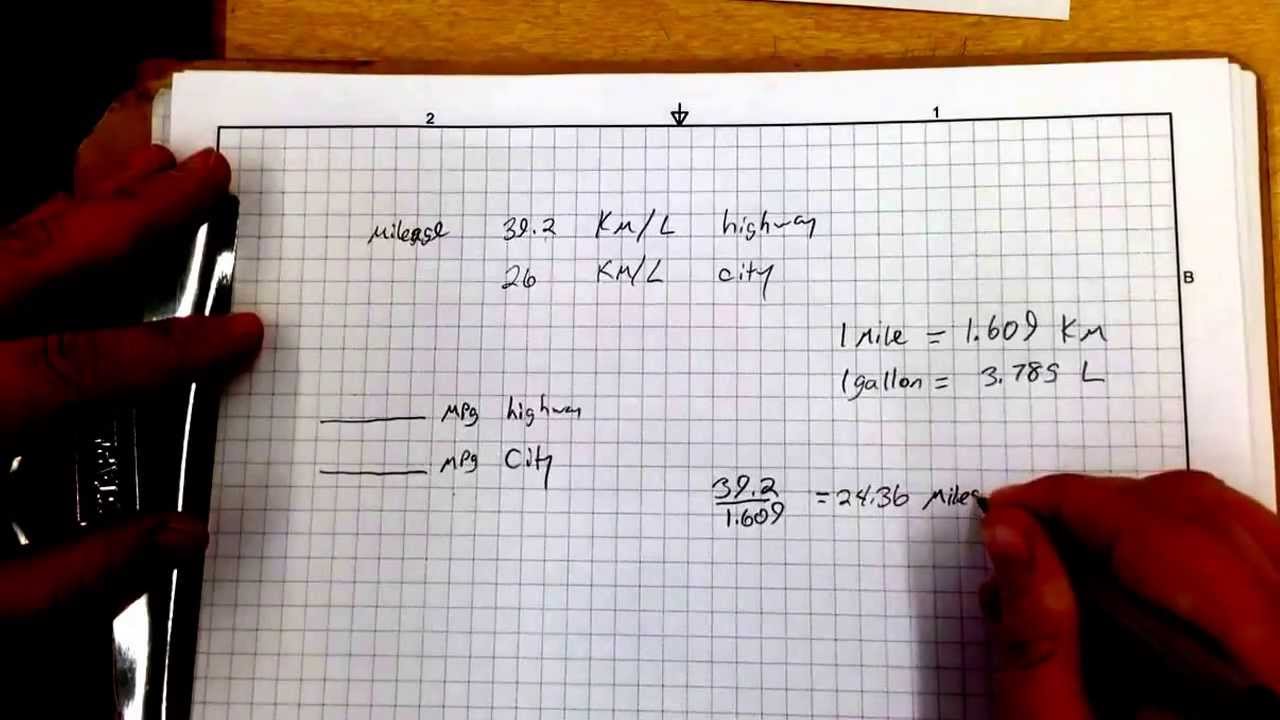 2 1
Mileage 39.2 KM/L highway
26 KM/L city
B
1 Mile = 1.609 KM
1 gallon = 3.785 L
MPg highway
MPg City
39.2
1.609
= 24.36 Miles